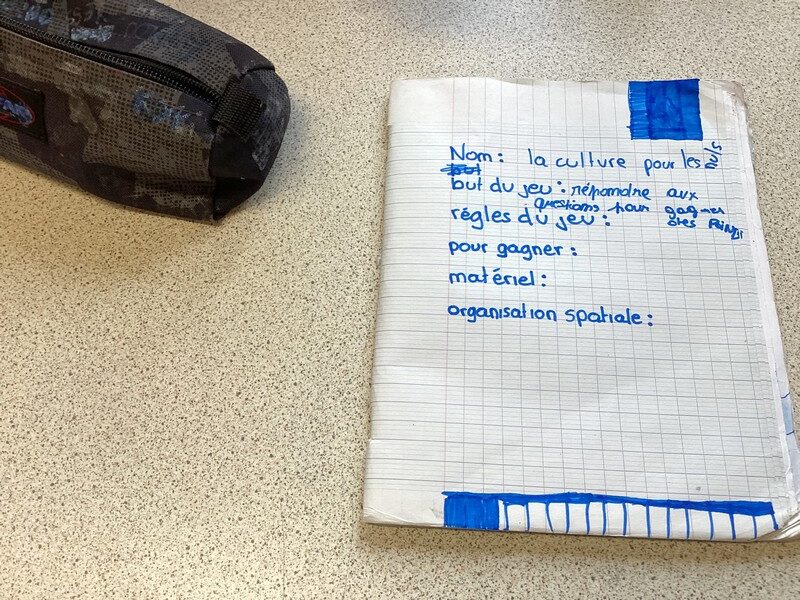 Nom: la culture pour les nuls
but
but du jeu : répondre aux
questions pour gagner
des points
régles du jeu :
pour gagner :
matériel :
organisation spatiale :